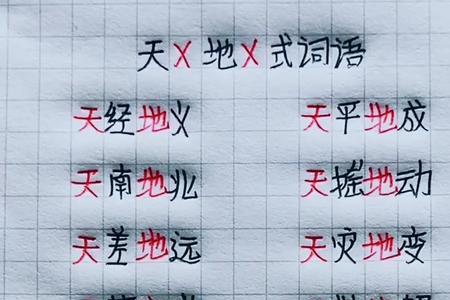 天X地X式词语
天经地义 天平地成
天南地北 天摇地动
天差地远 天灾地变